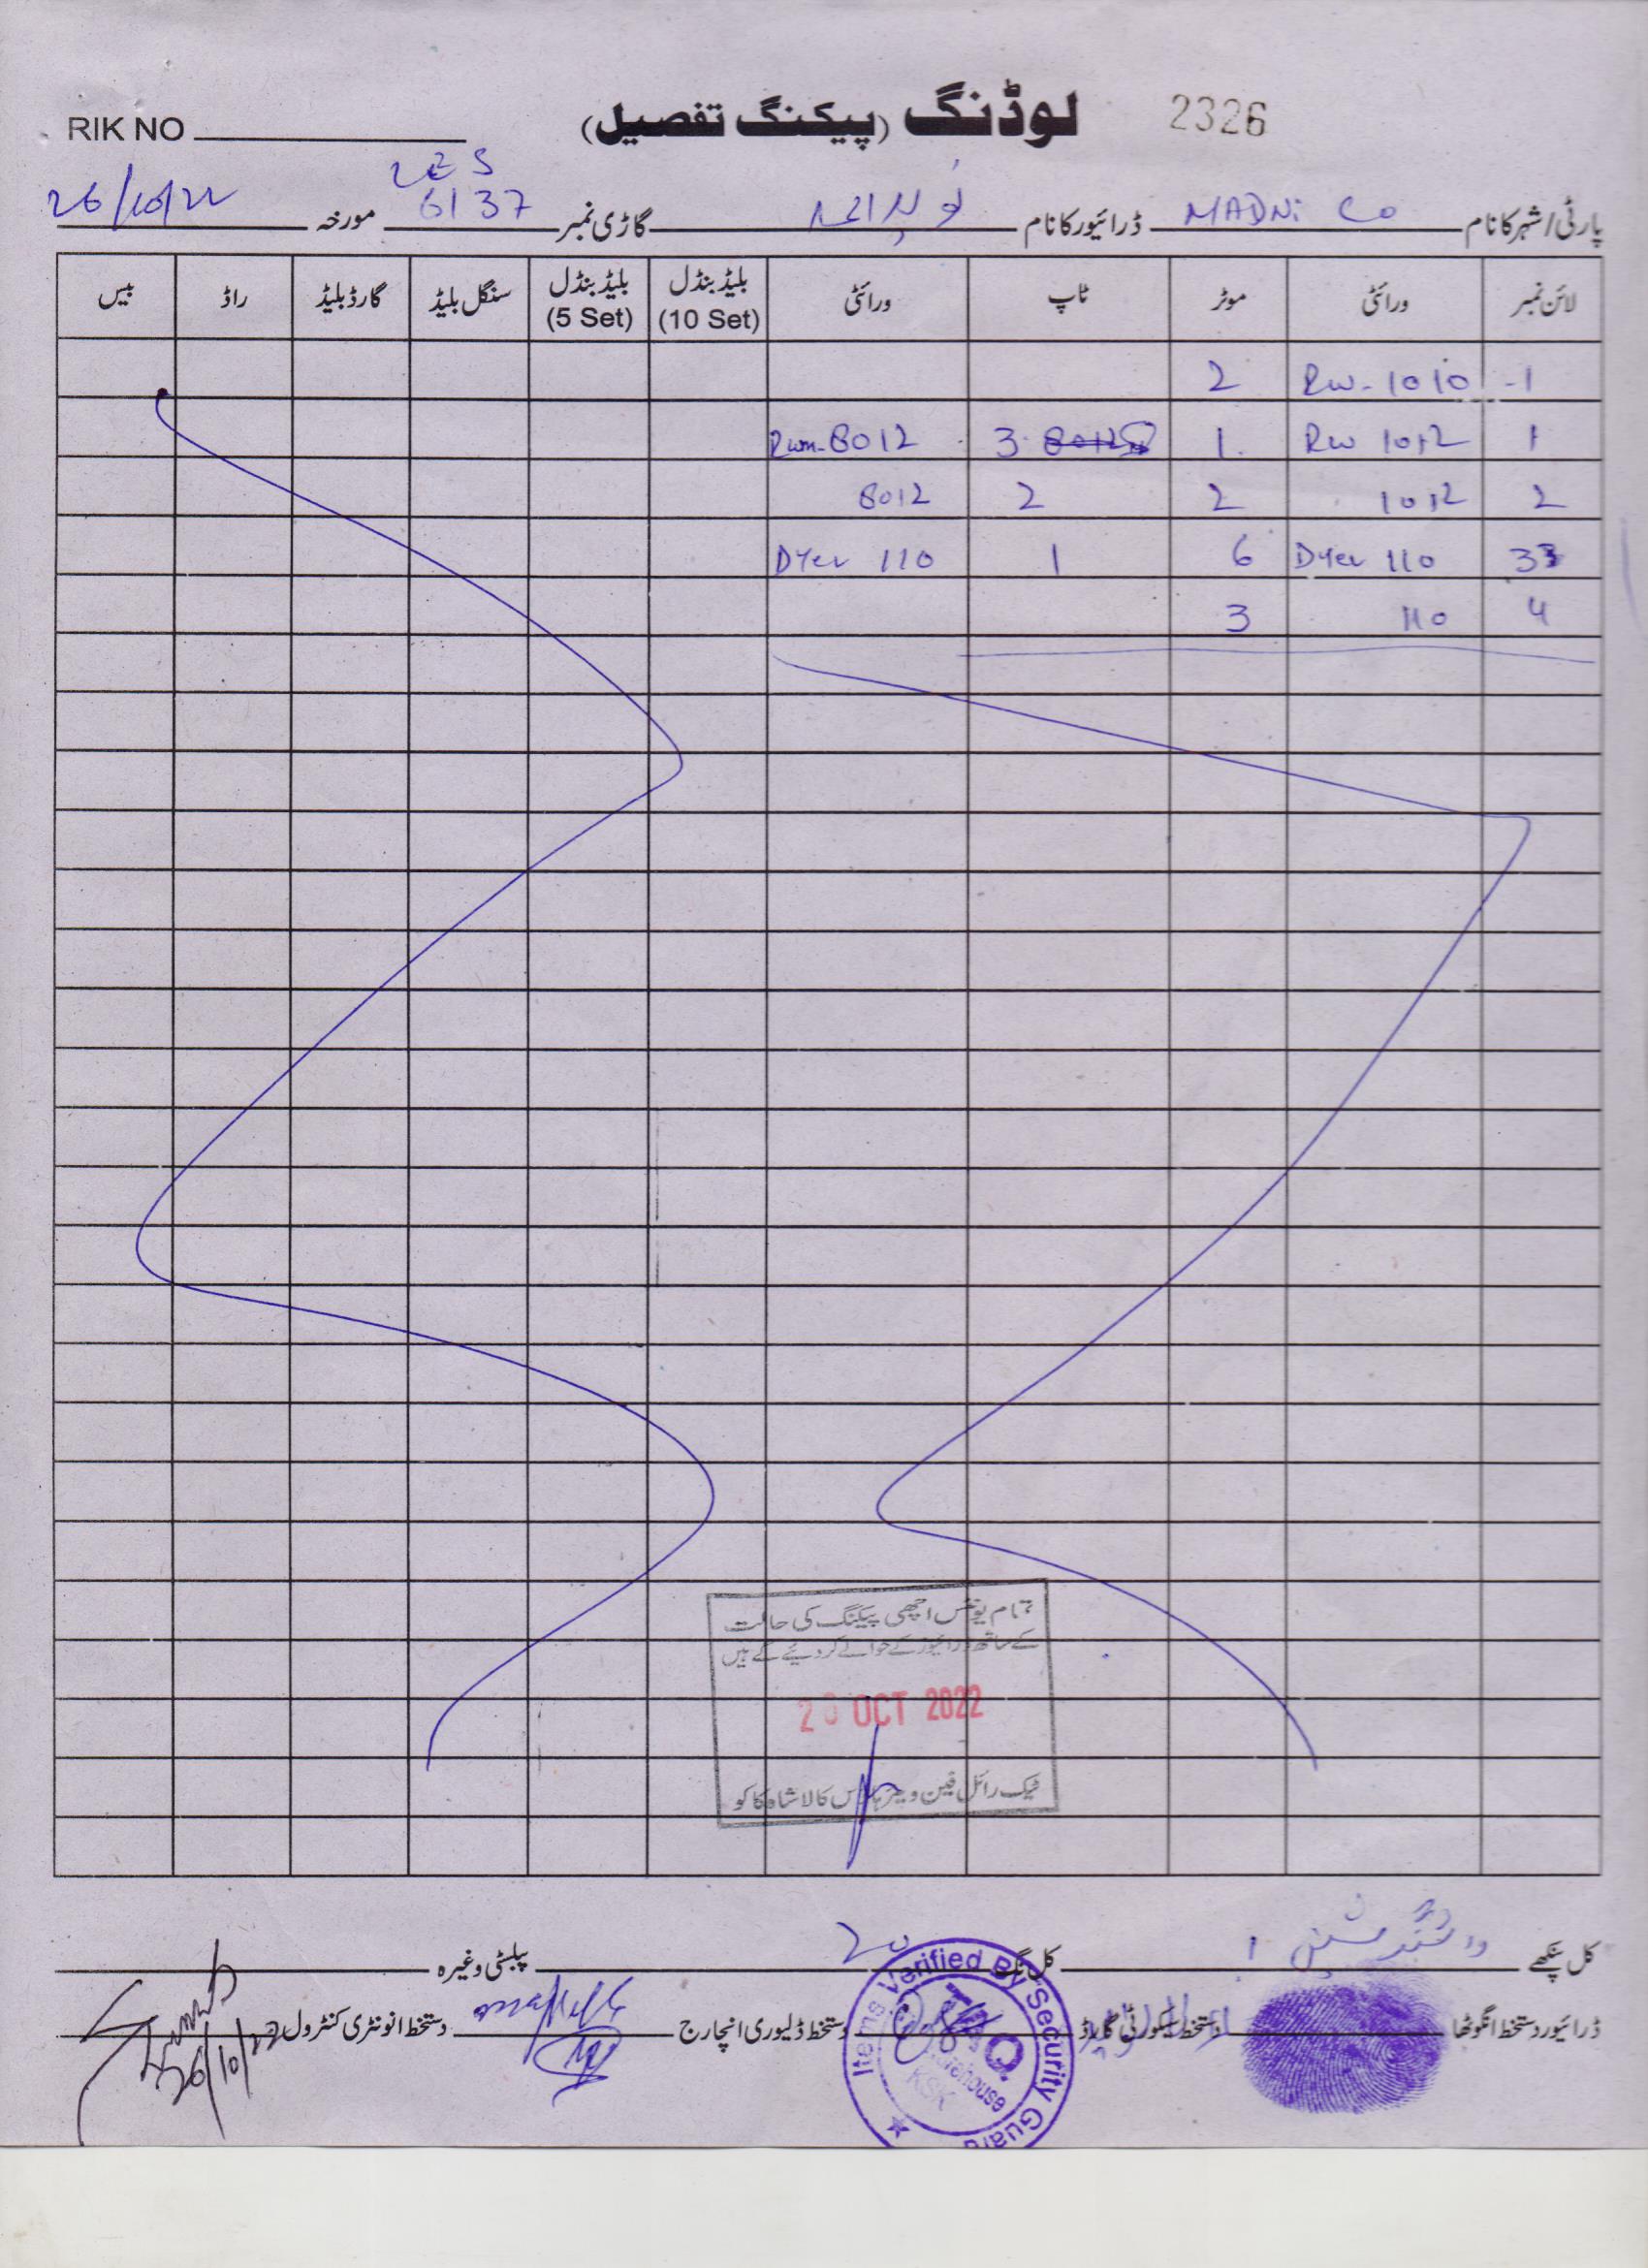 لوڈنگ (پیکنگ تفصیل) 2326
RIK NO
پارٹی/شہر کا نام MADNi Co ڈرائیور کا نام گاڑی نمبر LES 6137 مورخہ 26/10/22
لائن نمبر ورائٹی موٹر ٹاپ ورائٹی بلیڈ بنڈل (10 Set) بلیڈ بنڈل (5 Set) سنگل بلیڈ گارڈ بلیڈ راڈ بیس
-1 Rw-1010 2
1 Rw 1012 1 3 Rwm-8012
2 1012 2 2 8012
3 Dyer 110 6 1 Dyer 110
4 110 3
تمام یونٹس اچھی پیکنگ کی حالت
کے ساتھ ڈرائیور کے حوالے کر دیئے گئے ہیں
OCT 2022
ٹیک رائل فین ویئر ہاؤس کالا شاہ کاکو
کل پنکھے 1 کل نگ 20 پبلسٹی وغیرہ
ڈرائیور دستخط انگوٹھا دستخط سیکورٹی گارڈ دستخط ڈلیوری انچارج دستخط انونٹری کنٹرول
Items Verified By Security Guard
Warehouse
KSK
26/10/22